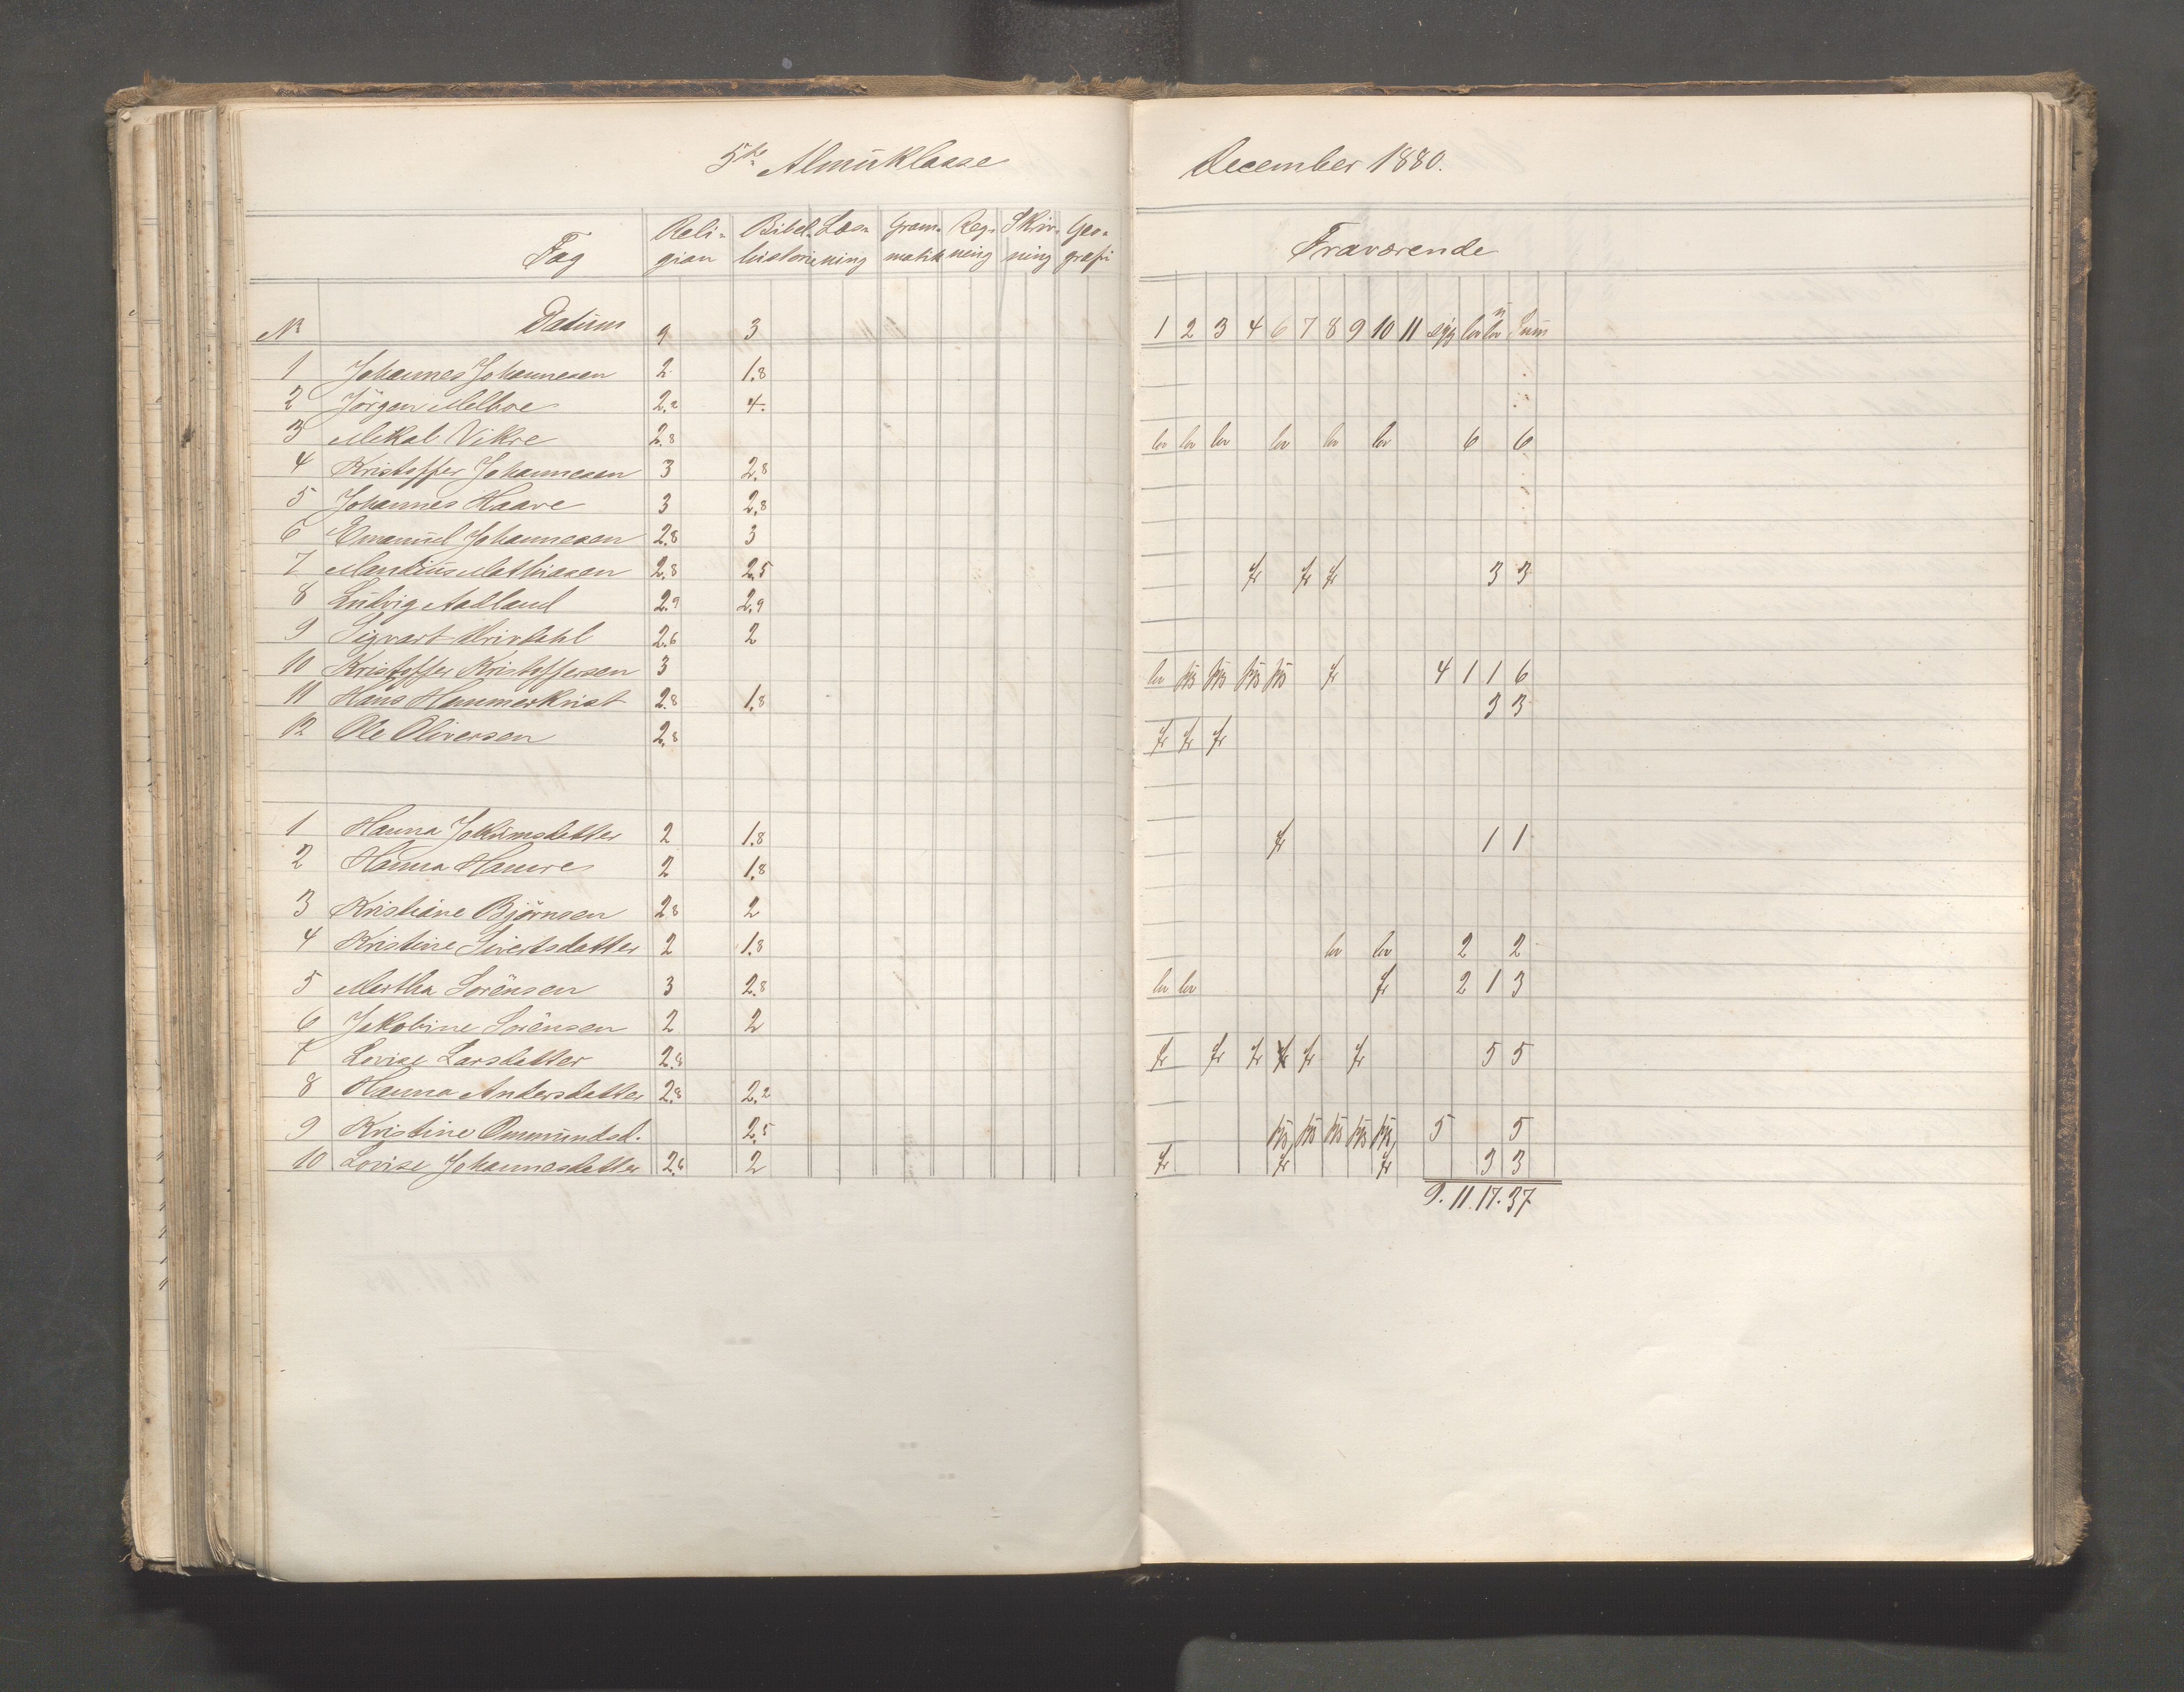 5te Almüklasse
Fag Reli- gion Bibel- historie Læs- ning Gram- matik Reg- ning Skriv- ning Geo- grafi
No Datüm 9 3
1 Johannes Johannesen 2 1.8
2 Jörgen Melboe 2.2 4.
3 Mikal Vikre 2.8
4 Kristoffer Johannesen 3 2.8
5 Johannes Haave 3 2.8
6 Emanüel Johannesen 2.8 3
7 Mathiasen 2.8 2.5
8 Lüdvig Aadland 2.9 2.9
9 Sigvart 2.6 2
10 Kristoffer Kristoffersen 3
11 Hans Hammerkvist 2.8 1.8
12 Ole Oliversen 2.8
1 Hanna Jokümsdatter 2 1.8
2 Hanna 2 1.8
3 Kristiane Björnsen 2.8 2
4 Kristine Sivertsdatter 2 1.8
5 Martha Sörensen 3 2.8
6 Jakobine Sörensen 2 2
7 Lovise Larsdatter 2.8
8 Hanna Andersdatter 2.8 2.2
9 Kristine Ommündsd. 2.5
10 Lovise Johannesdatter 2.6 2
December 1880.
Fraværende
1 2 3 4 6 7 8 9 10 11 syg lov ü lov Süm
lov lov lov lov lov lov 6 6
fr fr fr 3 3
lov syg syg syg syg fr 4 1 1 6
3 3
fr fr fr
fr 1 1
lov lov 2 2
lov lov fr 2 1 3
fr fr fr fr fr 5 5
syg syg syg syg syg 5 5
fr fr fr 3 3
9. 11. 17. 37.